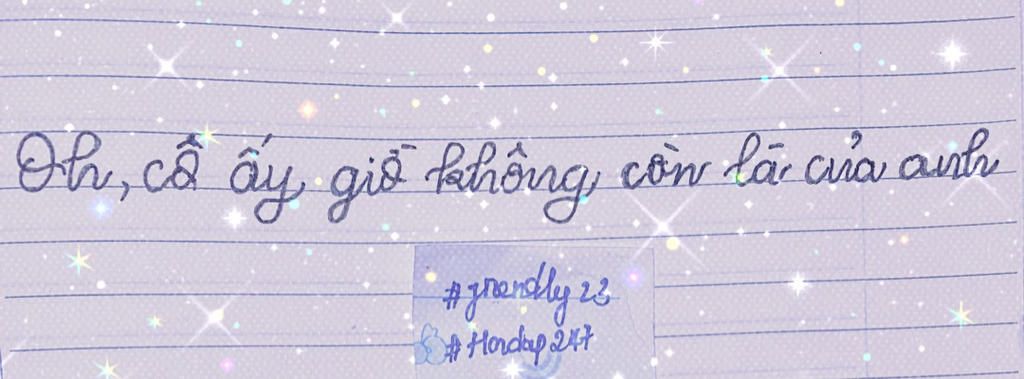 Oh, cô ấy giờ không còn là của anh
#friendly 23
#Hordap 247